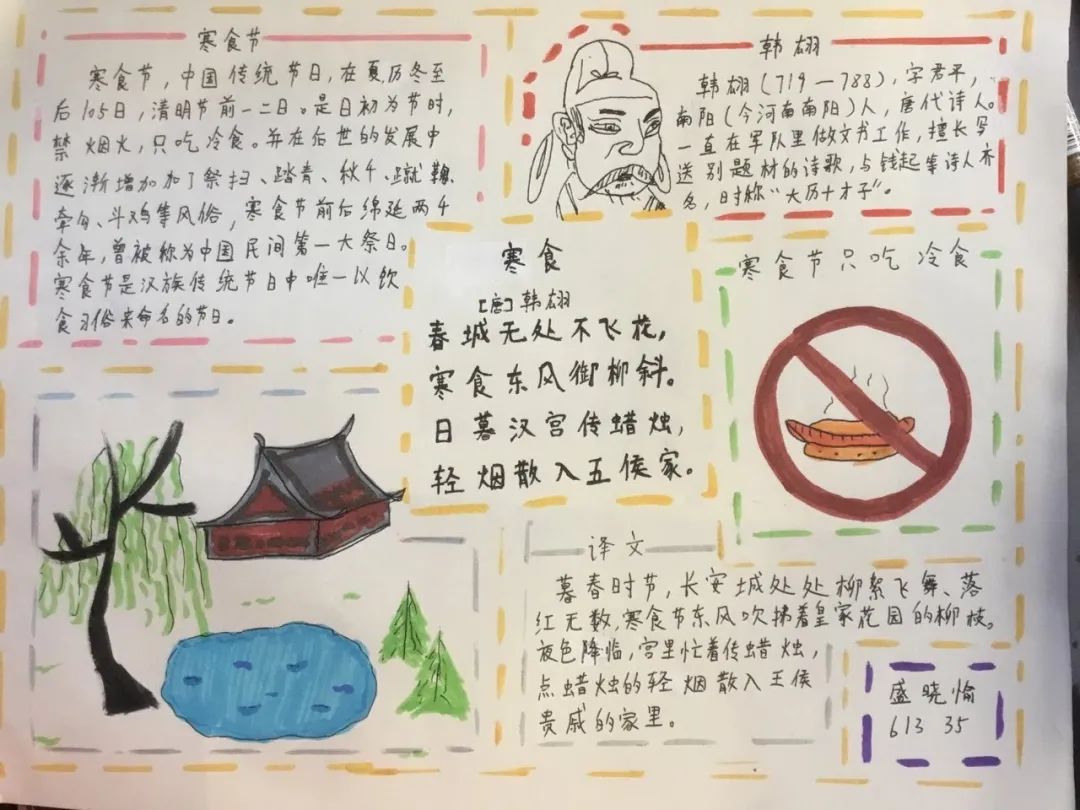 寒食节
寒食节,中国传统节日,在夏历冬至
后105日,清明节前一二日。是日初为节时,
禁烟火,只吃冷食。并在后世的发展中
逐渐增加加了祭扫、踏青、秋千、蹴鞠、
牵勾、斗鸡等风俗,寒食节前后绵延两千
余年,曾被称为中国民间第一大祭日。
寒食节是汉族传统节日中唯一以饮
食习俗来命名的节日。
韩翃
韩翃(719—788),字君平,
南阳(今河南南阳)人,唐代诗人。
一直在军队里做文书工作,擅长写
送别题材的诗歌,与钱起等诗人齐
名,时称“大历十才子”。
寒食
[唐]韩翃
春城无处不飞花,
寒食东风御柳斜。
日暮汉宫传蜡烛,
轻烟散入五侯家。
寒食节只吃冷食
译文
暮春时节,长安城处处柳絮飞舞、落
红无数,寒食节东风吹拂着皇家花园的柳枝。
夜色降临,宫里忙着传蜡烛,
点蜡烛的轻烟散入王侯
贵戚的家里。
盛晓愉
613 35